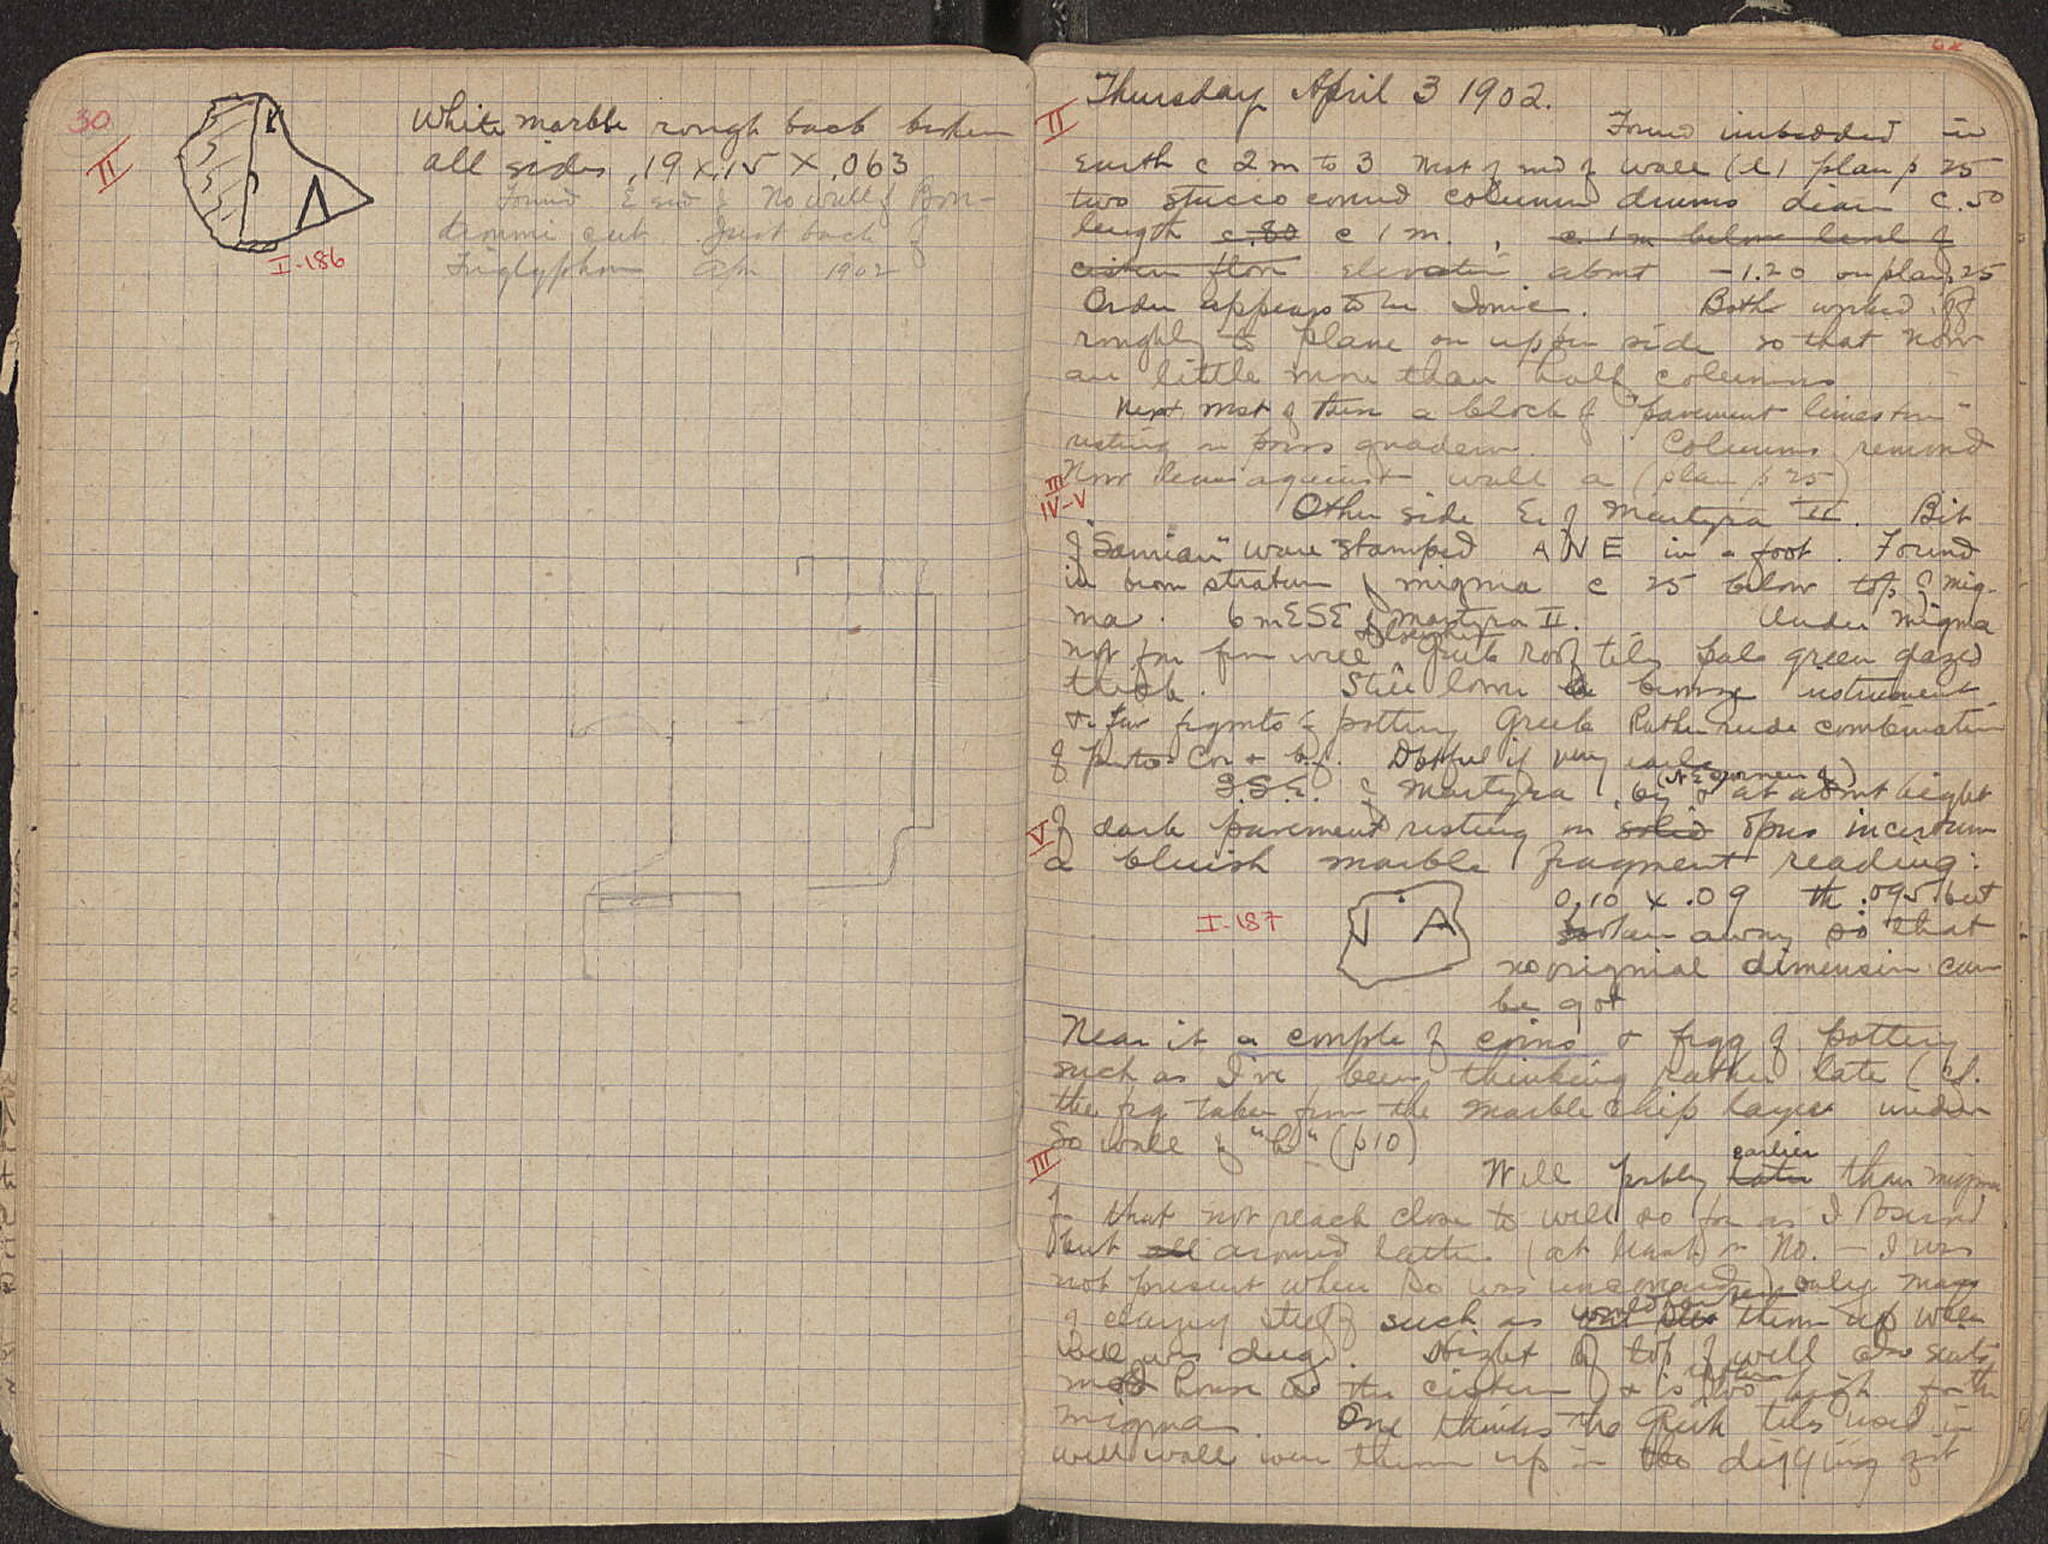 30
II
White marble rough back broken
all sides .19 x .15 x .063
Found E end of No wall of Bon-
droumi cut. Just back of
Triglyphon Apr 1902
K
Λ
I-186
Thursday April 3 1902.
II
Found imbedded in
earth c 2 m to 3 West of end of wall (l) plan p 25
two stucco covered column drums diam c .50
length c .80 c 1 m. , c. 1 m below level of
cistern floor elevation about -1.20 on plan p 25
Order appears to be Ionic. Both worked off
roughly to plane on upper side so that now
are little more than half columns
Next West of them a block of "pavement limestone"
resting on poros quadern. Columns removed
Now lean against wall a (plan p 25)
III
IV-V
Other side E. of Martyra II. Bit
of "Samian" ware stamped ANE in a foot. Found
in brown stratum of migma c 25 below top of mig-
ma. 6 m ESE of Martyra II. Under migma
not far from well Greek roof tiles pale green glazed
thick. Still lower bronze instrument
& few frgmts of pottery Greek Rather rude combination
of proto-Cor + b.f. Dbtful if very early
S.S.E. of Martyra (NE corner of) at about hight
V
of dark pavement resting on solid opus incertum
a bluish marble fragment reading:
I A
I-187
0.10 x .09 th .095 but
broken away so that
no orignial dimension can
be got
Near it a couple of coins & frgg of pottery
such as I've been thinking rather late (cf.
the frg taken from the marble chip layer under
So wall of "h" (p 10)
III
Well probly later earlier than migma
for that not reach close to well so far as I observd
but all around latter (at least on No. - I was
not present when So was uncovered) only mass
of clayey stuff such as would throw them up when
well was dug. Hight of top of well also suits
mod house as the cistern & is too high for the
migma. One thinks the Greek tiles used in
well wall were thrown up in the digging of it